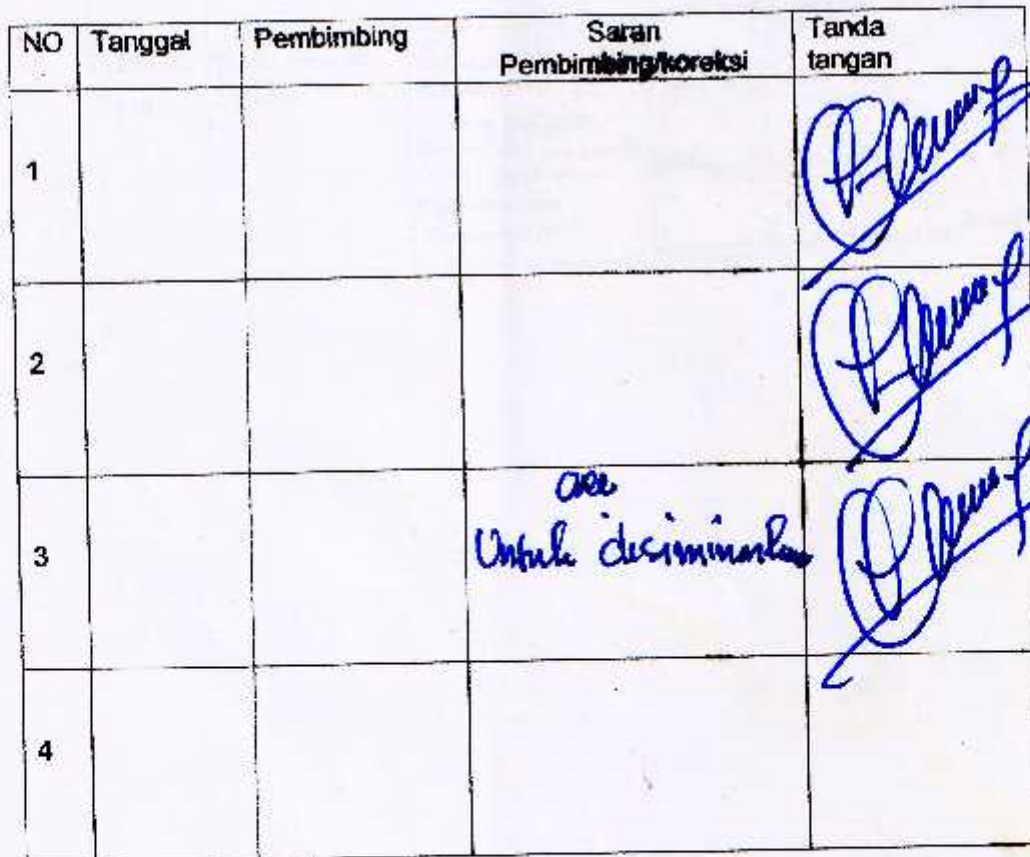 NO Tanggal Pembimbing Saran Pembimbing/koreksi Tanda tangan
1
2
acc
Untuk diseminarkan
3
4